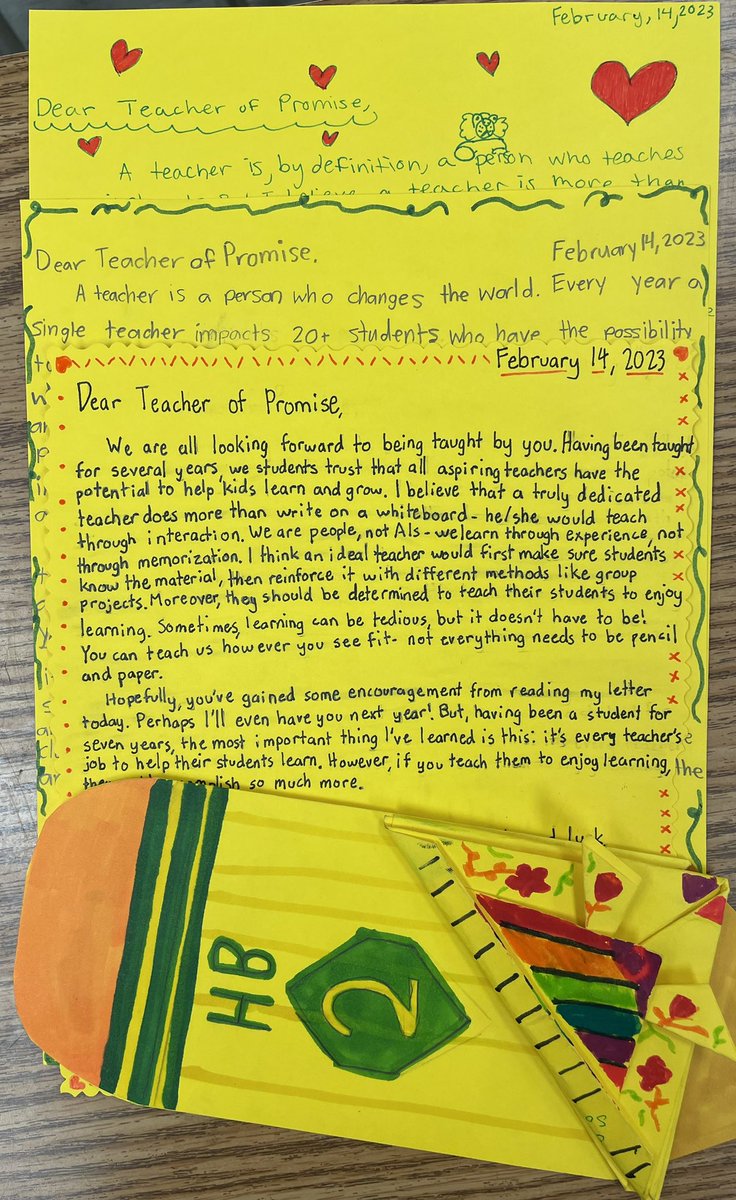 February, 14, 2023
Dear Teacher of Promise,
A teacher is, by definition, a person who teaches
a teacher is more than
Dear Teacher of Promise.
February 14, 2023
A teacher is a person who changes the world. Every year a
single teacher impacts 20+ students who have the possibility
February 14, 2023
Dear Teacher of Promise,
We are all looking forward to being taught by you. Having been taught
for several years, we students trust that all aspiring teachers have the
potential to help kids learn and grow. I believe that a truly dedicated
teacher does more than write on a whiteboard - he/she would teach
through interaction. We are people, not AIs - we learn through experience, not
through memorization. I think an ideal teacher would first make sure students
know the material, then reinforce it with different methods like group
projects. Moreover, they should be determined to teach their students to enjoy
learning. Sometimes, learning can be tedious, but it doesn't have to be!
You can teach us however you see fit - not everything needs to be pencil
and paper.
Hopefully, you've gained some encouragement from reading my letter
today. Perhaps I'll even have you next year! But, having been a student for
seven years, the most important thing I've learned is this: it's every teacher's
job to help their students learn. However, if you teach them to enjoy learning, the
so much more.
HB
2